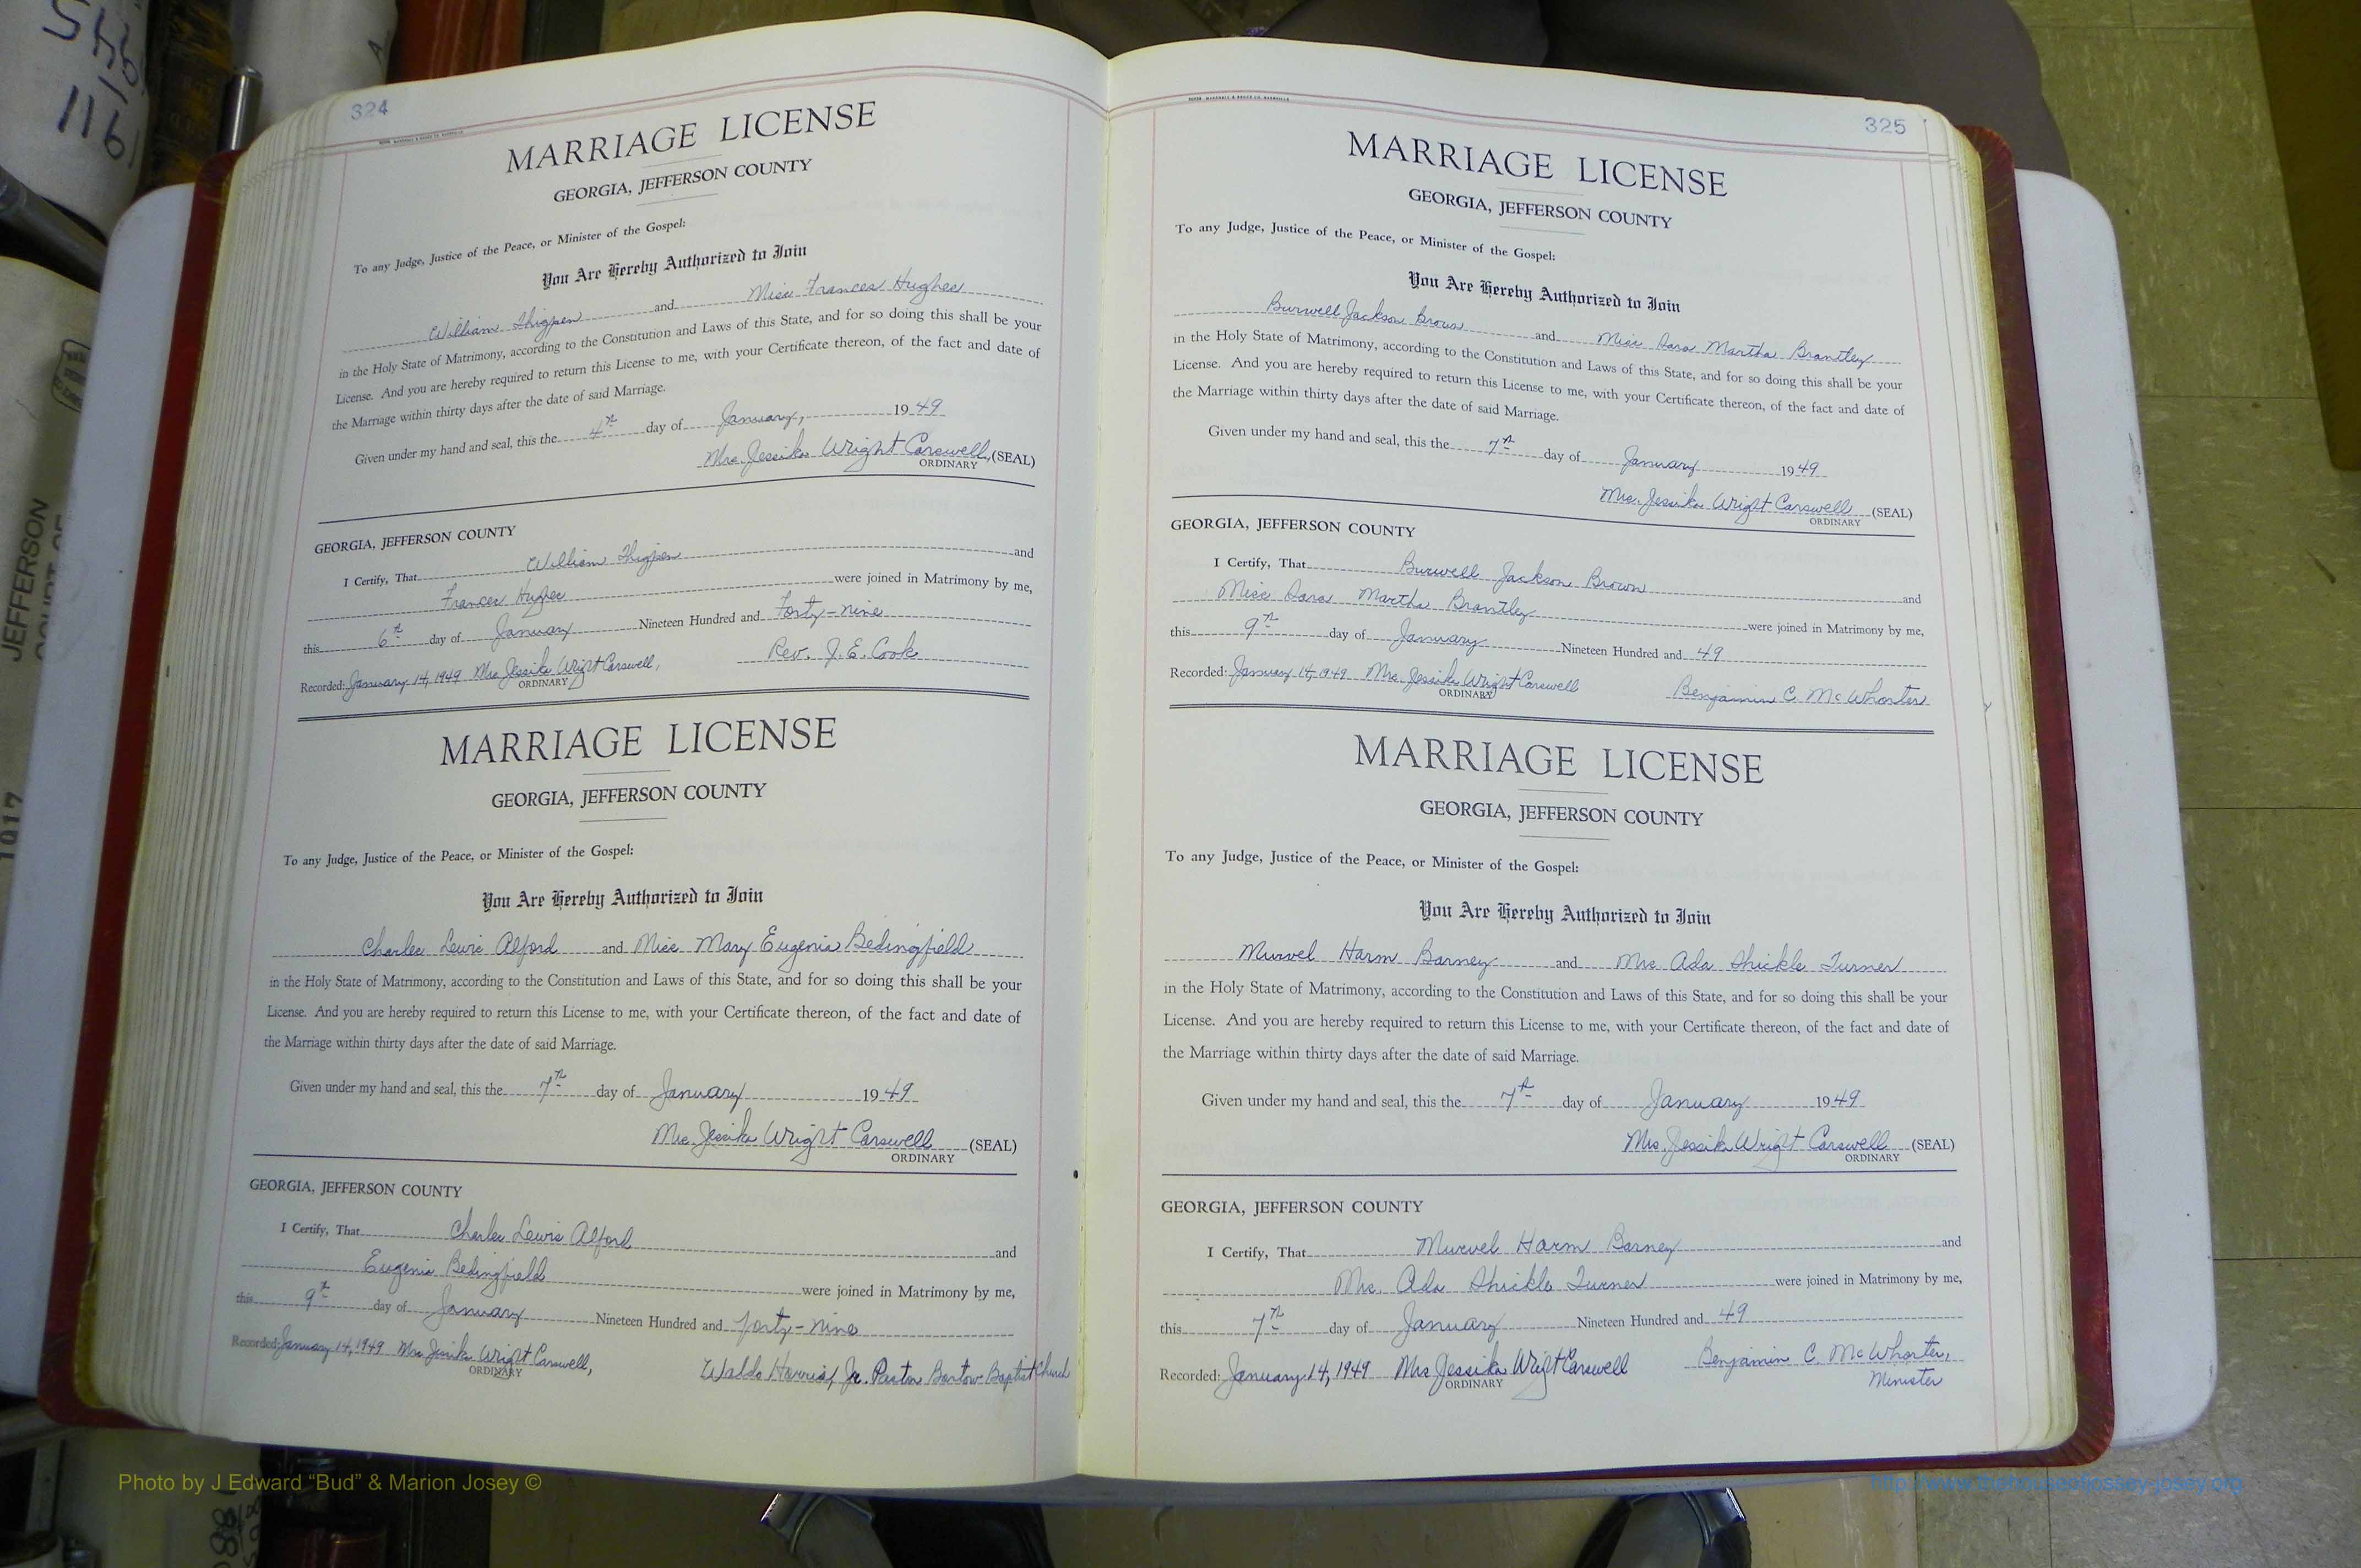 324
MARRIAGE LICENSE
GEORGIA, JEFFERSON COUNTY
To any Judge, Justice of the Peace, or Minister of the Gospel:
You Are Hereby Authorized to Join
William Thigpen and Miss Frances Hughes
in the Holy State of Matrimony, according to the Constitution and Laws of this State, and for so doing this shall be your
License. And you are hereby required to return this License to me, with your Certificate thereon, of the fact and date of
the Marriage within thirty days after the date of said Marriage.
Given under my hand and seal, this the 4th day of January, 1949
Mrs. Jessika Wright Carswell, (SEAL)
ORDINARY
GEORGIA, JEFFERSON COUNTY
I Certify, That William Thigpen and
Frances Hughes were joined in Matrimony by me,
this 6th day of January Nineteen Hundred and Forty-nine
Recorded: January 14, 1949 Mrs. Jessika Wright Carswell, Rev. J. E. Cook
ORDINARY
MARRIAGE LICENSE
GEORGIA, JEFFERSON COUNTY
To any Judge, Justice of the Peace, or Minister of the Gospel:
You Are Hereby Authorized to Join
Charles Lewis Alford and Miss Mary Eugenia Bedingfield
in the Holy State of Matrimony, according to the Constitution and Laws of this State, and for so doing this shall be your
License. And you are hereby required to return this License to me, with your Certificate thereon, of the fact and date of
the Marriage within thirty days after the date of said Marriage.
Given under my hand and seal, this the 7th day of January 1949
Mrs. Jessika Wright Carswell (SEAL)
ORDINARY
GEORGIA, JEFFERSON COUNTY
I Certify, That Charles Lewis Alford and
Eugenia Bedingfield were joined in Matrimony by me,
this 9th day of January Nineteen Hundred and forty-nine
Recorded: January 14, 1949 Mrs. Jessika Wright Carswell, Waldo Harris, Jr. Pastor Bartow Baptist Church
ORDINARY
325
MARRIAGE LICENSE
GEORGIA, JEFFERSON COUNTY
To any Judge, Justice of the Peace, or Minister of the Gospel:
You Are Hereby Authorized to Join
Burwell Jackson Brown and Miss Sara Martha Brantley
in the Holy State of Matrimony, according to the Constitution and Laws of this State, and for so doing this shall be your
License. And you are hereby required to return this License to me, with your Certificate thereon, of the fact and date of
the Marriage within thirty days after the date of said Marriage.
Given under my hand and seal, this the 7th day of January 1949
Mrs. Jessika Wright Carswell (SEAL)
ORDINARY
GEORGIA, JEFFERSON COUNTY
I Certify, That Burwell Jackson Brown and
Miss Sara Martha Brantley were joined in Matrimony by me,
this 9th day of January Nineteen Hundred and 49
Recorded: January 14, 1949 Mrs. Jessika Wright Carswell Benjamin C. McWhorter
ORDINARY
MARRIAGE LICENSE
GEORGIA, JEFFERSON COUNTY
To any Judge, Justice of the Peace, or Minister of the Gospel:
You Are Hereby Authorized to Join
Murvel Harm Barney and Mrs. Ada Shickle Turner
in the Holy State of Matrimony, according to the Constitution and Laws of this State, and for so doing this shall be your
License. And you are hereby required to return this License to me, with your Certificate thereon, of the fact and date of
the Marriage within thirty days after the date of said Marriage.
Given under my hand and seal, this the 7th day of January 1949
Mrs. Jessika Wright Carswell (SEAL)
ORDINARY
GEORGIA, JEFFERSON COUNTY
I Certify, That Murvel Harm Barney and
Mrs. Ada Shickle Turner were joined in Matrimony by me,
this 7th day of January Nineteen Hundred and 49
Recorded: January 14, 1949 Mrs Jessika Wright Carswell Benjamin C. McWhorter,
ORDINARY Minister
JEFFERSON
1917
Photo by J Edward “Bud” & Marion Josey ©
http://www.thehouseofjossey-josey.org